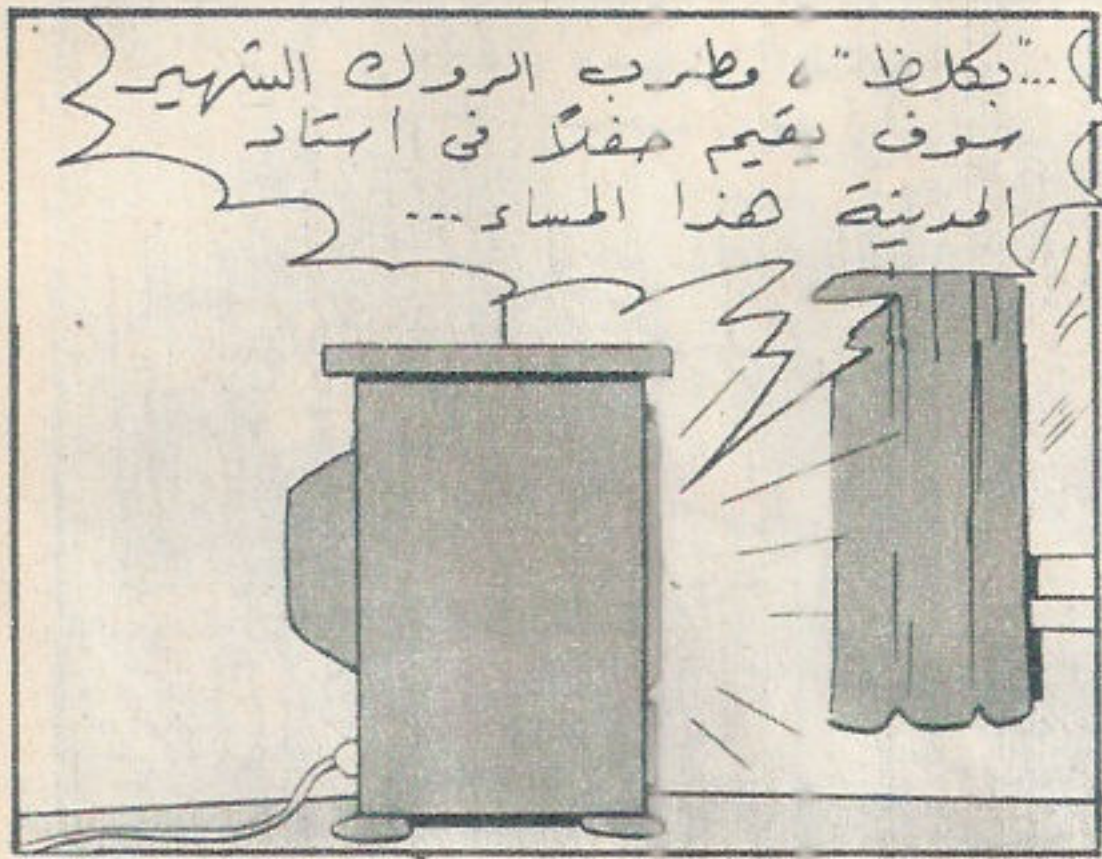 ..."بكلظ"، مطرب الروك الشهير
سوف يقيم حفلاً فى استاد
المدينة هذا المساء...